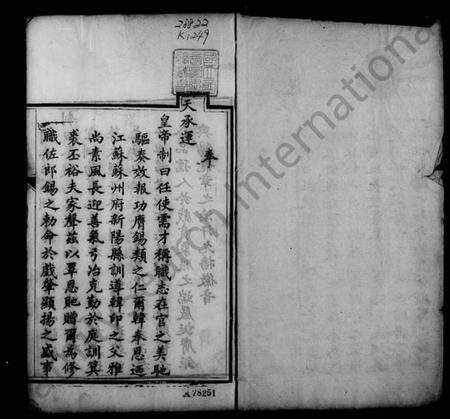 28822
K1249
奉
天承運
皇帝制曰任使需才稱職志在官之美馳
驅奏效報功膺錫類之仁爾韓奉恩迺
江蘇蘇州府新陽縣訓導韓印之父雅
尚素風長迎善氣弓冶克勤於庭訓箕
裘丕裕夫家聲茲以覃恩貤贈爾為修
職佐郎錫之勅命於戲肇顯揚之盛事
28251